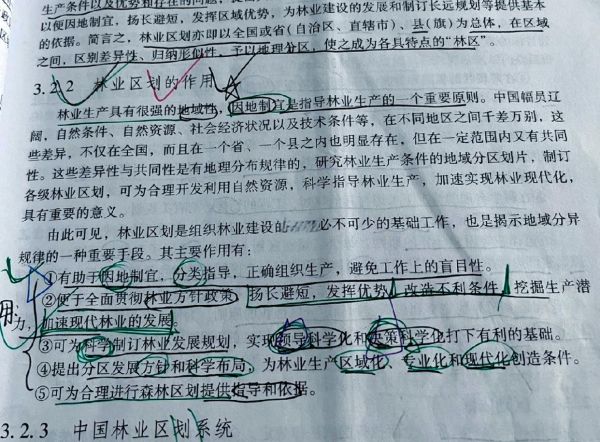 生产条件以及优势和存在的问题,提
以便因地制宜,扬长避短,发挥区域优势,为林业建设的发展和制订长远规划等提供基本
的依据。简言之,林业区划亦即以全国或省(自治区、直辖市)、县(旗)为总体,在区域
之间,区别差异性、归纳形似性,予以地理分区,使之成为各具特点的“林区”。
3.2.2 林业区划的作用
林业生产具有很强的地域性,因地制宜是指导林业生产的一个重要原则。中国幅员辽
阔,自然条件、自然资源、社会经济状况以及技术条件等,在不同地区之间千差万别,这
些差异,不仅在全国,而且在一个省、一个县之内也明显存在,但在一定范围内又有共同
性。这些差异性与共同性是有地理分布规律的,研究林业生产条件的地域分区划片,制订
各级林业区划,可为合理开发利用自然资源,科学指导林业生产,加速实现林业现代化,
具有重要的意义。
由此可见,林业区划是组织林业建设的必不可少的基础工作,也是揭示地域分异
规律的一种重要手段。其主要作用有:
①有助于因地制宜,分类指导,正确组织生产,避免工作上的盲目性。
②便于全面贯彻林业方针政策,扬长避短,发挥优势,改造不利条件,挖掘生产潜
力,加速现代林业的发展。
③可为科学制订林业发展规划,实现领导科学化和决策科学化打下有利的基础。
④提出分区发展方针和科学布局,为林业生产区域化、专业化和现代化创造条件。
⑤可为合理进行森林区划提供指导和依据。
3.2.3 中国林业区划系统
用: